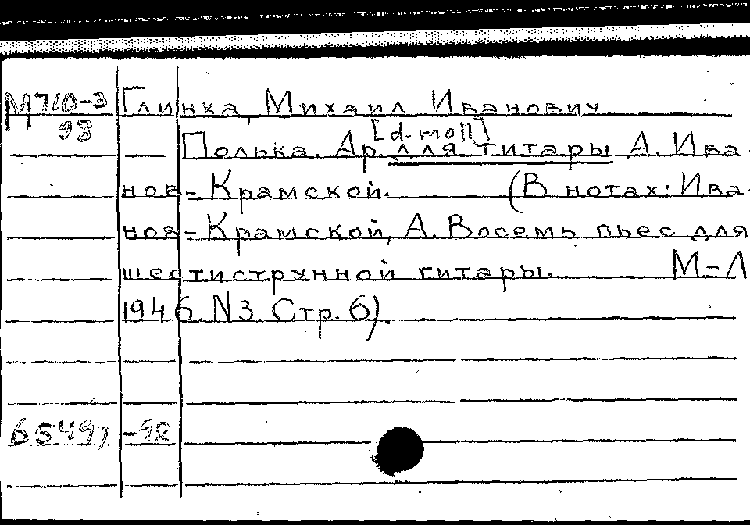 М710-3 Глинка, Михаил Иванович
93
[d-moll]
Полька. Ар. для гитары А. Ива-
нов-Крамской. (В нотах: Ива-
нов-Крамской, А. Восемь пьес для
шестиструнной гитары. М-Л
1946. N3. Стр. 6).